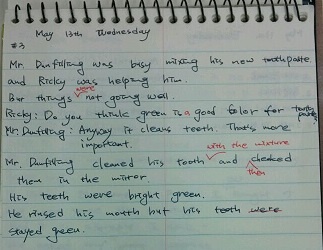 May 13th Wednesday
#3
Mr. Dunfilling was busy mixing his new toothpaste
and Ricky was helping him.
But things were not going well.
Ricky: Do you think green is a good color for tooth paste?
Mr. Dunfilling: Anyway it cleans teeth. That's more
important.
Mr. Dunfilling cleaned his tooth with the mixture and checked
then
them in the mirror.
His teeth were bright green.
He rinsed his mouth but his teeth were
stayed green.